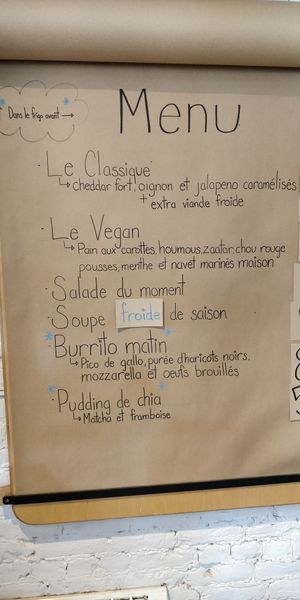 Dans le frigo avant →
Menu
· Le Classique
↳ cheddar fort, oignon et jalapeno caramélisés
+ extra viande froide
· Le Vegan
↳ Pain aux carottes, houmous, zaatar, chou rouge
pousses, menthe et navet marinés maison
· Salade du moment
· Soupe froide de saison
* Burrito matin *
↳ Pico de gallo, purée d'haricots noirs,
mozzarella et oeufs brouillés
* Pudding de chia *
↳ Matcha et framboise